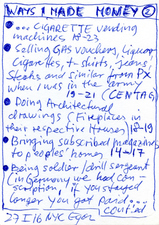 WAYS I MADE MONEY ②
... CIGARETTE vending
machines 18-23
• Selling GAS vouchers, Liquor
Cigarettes, t-shirts, jeans,
Steaks and similar from PX
when I was in the army
19-21 (CENTAG)
• Doing Architectural
drawings (Fireplaces in
their respective Houses) 18-19
• Bringing subscribed magazines
to peoples' homes 14-17
• Being soldier/drill sergeant
(in Germany we had con-
scription. if you stayed
longer you got paid...
cont'd
27 I 16 NYC Eger